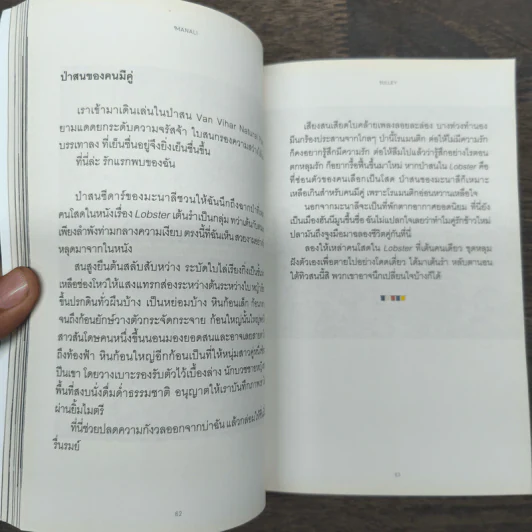 MANALI
ป่าสนของคนมีคู่
เราเข้ามาเดินเล่นในป่าสน Van Vihar Natural
ยามแดดยกระดับความจรัสจ้า ใบสนกรองความสว่าง
บรรเทาลง ที่เย็นชื่นอยู่จึงยิ่งเย็นชื่นขึ้น
ที่นี่ล่ะ รักแรกพบของฉัน
ป่าสนซีดาร์ของมะนาลีชวนให้ฉันนึกถึงฉาก
คนโสดในหนังเรื่อง Lobster เต้นรำเป็นกลุ่ม ทว่าเต้น
เพียงลำพังท่ามกลางความเงียบ ตรงนี้ที่ฉันเห็นสวย
หลุดมาจากในหนัง
สนสูงยืนต้นสลับสับหว่าง ระบัดใบไล่เรียงกิ่ง
เหลือช่องโหว่ให้แสงแทรกส่องระหว่างต้นระหว่างใบ
ขึ้นปรกดินทั่วผืนบ้าง เป็นหย่อมบ้าง หินก้อนเล็ก
จนถึงก้อนยักษ์วางตัวกระจัดกระจาย ก้อนใหญ่นั้น
สาวสันโดษคนหนึ่งขึ้นนอนมองยอดสนและอาจเลย
ถึงท้องฟ้า หินก้อนใหญ่อีกก้อนเป็นที่ให้หนุ่มสาวคู่หนึ่ง
ปีนเขา โดยวางเบาะรองรับตัวไว้เบื้องล่าง นักบวช
พื้นที่สงบนั่งดื่มด่ำธรรมชาติ อนุญาตให้เราบันทึกภาพ
ผ่านยิ้มไมตรี
ที่นี่ช่วยปลดความกังวลออกจากบ่าฉัน แล้วกล่อม
รื่นรมย์
62
เสียงสนเสียดใบคล้ายเพลงลอยละล่อง บางห่วงทำนอง
มีนกร้องประสานจากไกลๆ ป่านี้โรแมนติก ต่อให้ไม่มีความรัก
ก็คงอยากรู้สึกมีความรัก ต่อให้ลืมไปแล้วว่ารู้สึกอย่างไรตอน
ตกหลุมรัก ก็อยากรื้อฟื้นขึ้นมาใหม่ หากป่าสนใน Lobster คือ
ที่ซ่อนตัวของคนเลือกเป็นโสด ป่าสนของมะนาลีก็เหมาะ
เหลือเกินสำหรับคนมีคู่ เพราะโรแมนติกอ่อนหวานเหลือใจ
นอกจากมะนาลีจะเป็นที่พักตากอากาศยอดนิยม ที่นี่ยัง
เป็นเมืองฮันนีมูนขึ้นชื่อ ฉันไม่แปลกใจเลยว่าทำไมคู่รักข้าวใหม่
ปลามันถึงจูงมือมาฉลองชีวิตคู่กันที่นี่
ลองให้เหล่าคนโสดใน Lobster ที่เต้นคนเดียว ขุดหลุม
ฝังตัวเองเพื่อตายไปอย่างโดดเดี่ยว ได้มาเต้นรำ หลับตานอน
ใต้ทิวสนนี้สิ พวกเขาอาจนึกเปลี่ยนใจบ้างก็ได้